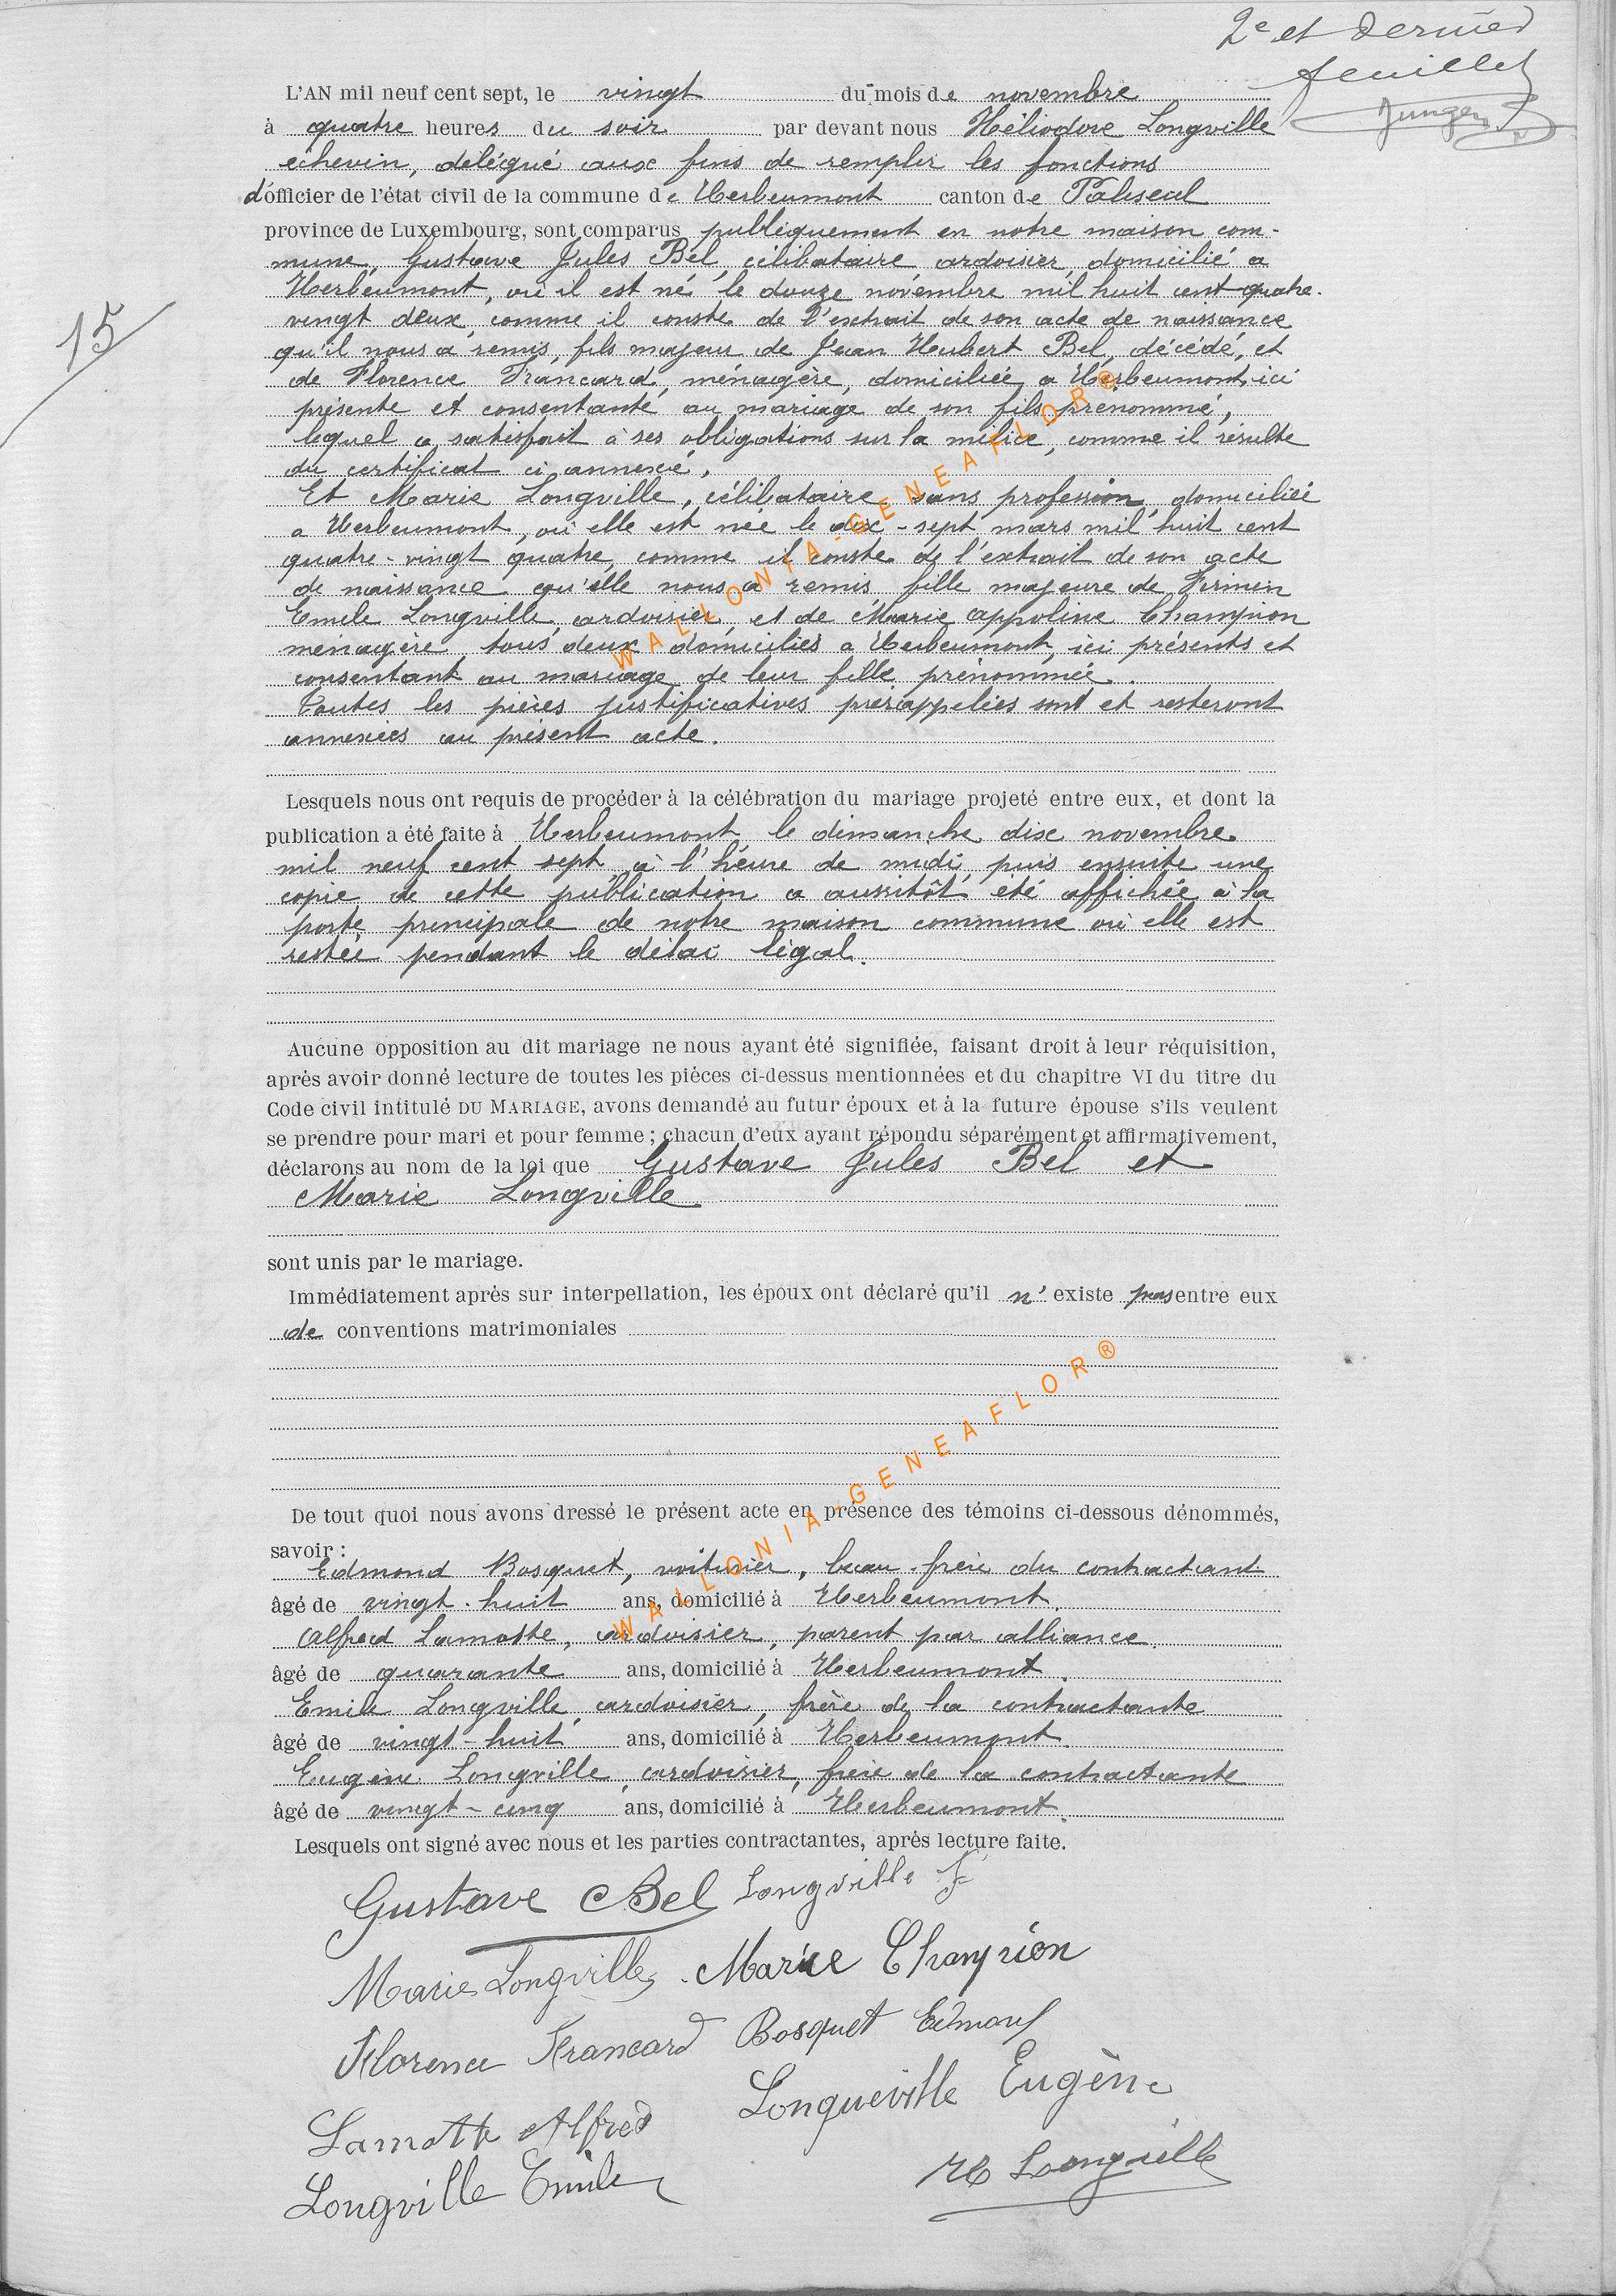 2e et dernier
feuillet
L'AN mil neuf cent sept, le vingt du mois de novembre
à quatre heures du soir par devant nous Héliodore Longville
echevin, délégué aux fins de remplir les fonctions
d'officier de l'état civil de la commune de Herbeumont canton de Paliseul
province de Luxembourg, sont comparus publiquement en notre maison com-
mune, Gustave Jules Bel, célibataire, ardoisier, domicilié a
Herbeumont, où il est né le douze novembre mil huit cent quatre-
vingt deux, comme il conste de l'extrait de son acte de naissance
qu'il nous a remis, fils majeur de Jean Hubert Bel, décédé, et
de Florence Francard, ménagère, domiciliée a Herbeumont, ici
présente et consentante au mariage de son fils prénommé,
lequel a satisfait à ses obligations sur la milice, comme il résulte
du certificat ci annexé.
Et Marie Longville, célibataire, sans profession, domiciliée
a Herbeumont, où elle est née le dix-sept mars mil huit cent
quatre-vingt quatre, comme il conste de l'extrait de son acte
de naissance qu'elle nous a remis, fille majeure de Firmin
Emile Longville, ardoisier, et de Marie appoline Champion
ménagère, tous deux domiciliés a Herbeumont, ici présents et
consentant au mariage de leur fille prénommée.
Toutes les pièces justificatives prérappelées sont et resteront
annexées au présent acte.
15
Lesquels nous ont requis de procéder à la célébration du mariage projeté entre eux, et dont la
publication a été faite à Herbeumont le dimanche dix novembre
mil neuf cent sept, à l'heure de midi, puis ensuite une
copie de cette publication a aussitôt été affichée à la
porte principale de notre maison commune où elle est
restée pendant le délai légal.
Aucune opposition au dit mariage ne nous ayant été signifiée, faisant droit à leur réquisition,
après avoir donné lecture de toutes les pièces ci-dessus mentionnées et du chapitre VI du titre du
Code civil intitulé DU MARIAGE, avons demandé au futur époux et à la future épouse s'ils veulent
se prendre pour mari et pour femme ; chacun d'eux ayant répondu séparément et affirmativement,
déclarons au nom de la loi que Gustave Jules Bel et
Marie Longville
sont unis par le mariage.
Immédiatement après sur interpellation, les époux ont déclaré qu'il n' existe pas entre eux
de conventions matrimoniales
De tout quoi nous avons dressé le présent acte en présence des témoins ci-dessous dénommés,
savoir :
Edmond Bosquet, voiturier, beau-frère du contractant
âgé de vingt-huit ans, domicilié à Herbeumont.
Alfred Lamotte, ardoisier, parent par alliance,
âgé de quarante ans, domicilié à Herbeumont.
Emile Longville, ardoisier, frère de la contractante
âgé de vingt-huit ans, domicilié à Herbeumont.
Eugène Longville, ardoisier, frère de la contractante
âgé de vingt-cinq ans, domicilié à Herbeumont.
Lesquels ont signé avec nous et les parties contractantes, après lecture faite.
Gustave Bel Longville F
Marie Longville Marie Champion
Florence Francard Bosquet Edmond
Lamotte Alfred Longueville Eugène
Longville Emile H Longville
WALLONIA-GENEAFLOR®
WALLONIA-GENEAFLOR®